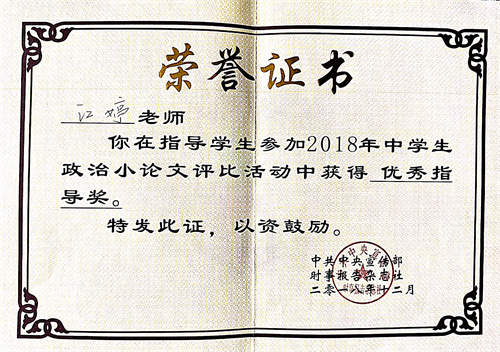 荣誉证书
江婷 老师
你在指导学生参加2018年中学生
政治小论文评比活动中获得 优秀指
导奖。
特发此证，以资鼓励。
中共中央宣传部
时事报告杂志社
二零一八年十二月